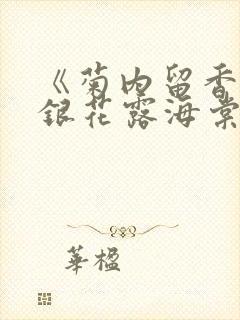 《菊内留香
银花露海棠
華楹